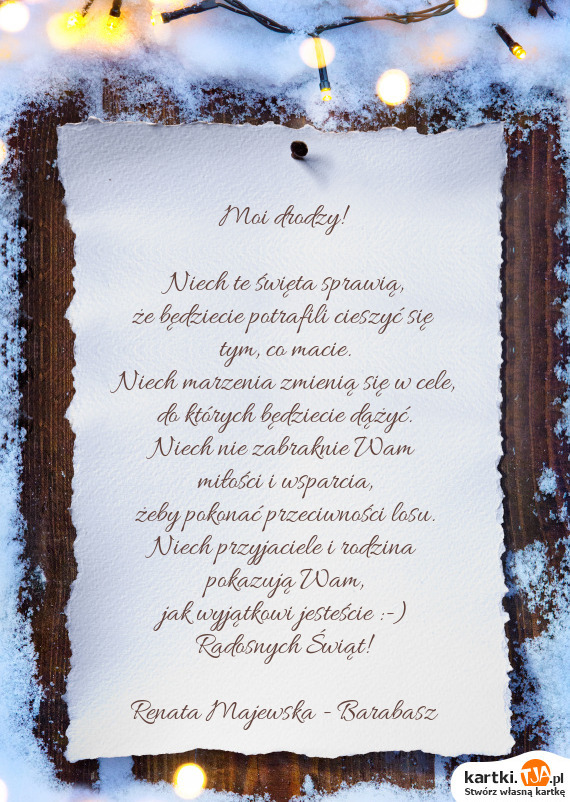 Moi drodzy!
Niech te święta sprawią,
że będziecie potrafili cieszyć się
tym, co macie.
Niech marzenia zmienią się w cele,
do których będziecie dążyć.
Niech nie zabraknie Wam
miłości i wsparcia,
żeby pokonać przeciwności losu.
Niech przyjaciele i rodzina
pokazują Wam,
jak wyjątkowi jesteście :-)
Radosnych Świąt!
Renata Majewska - Barabasz
kartki.TJA.pl
Stwórz własną kartkę